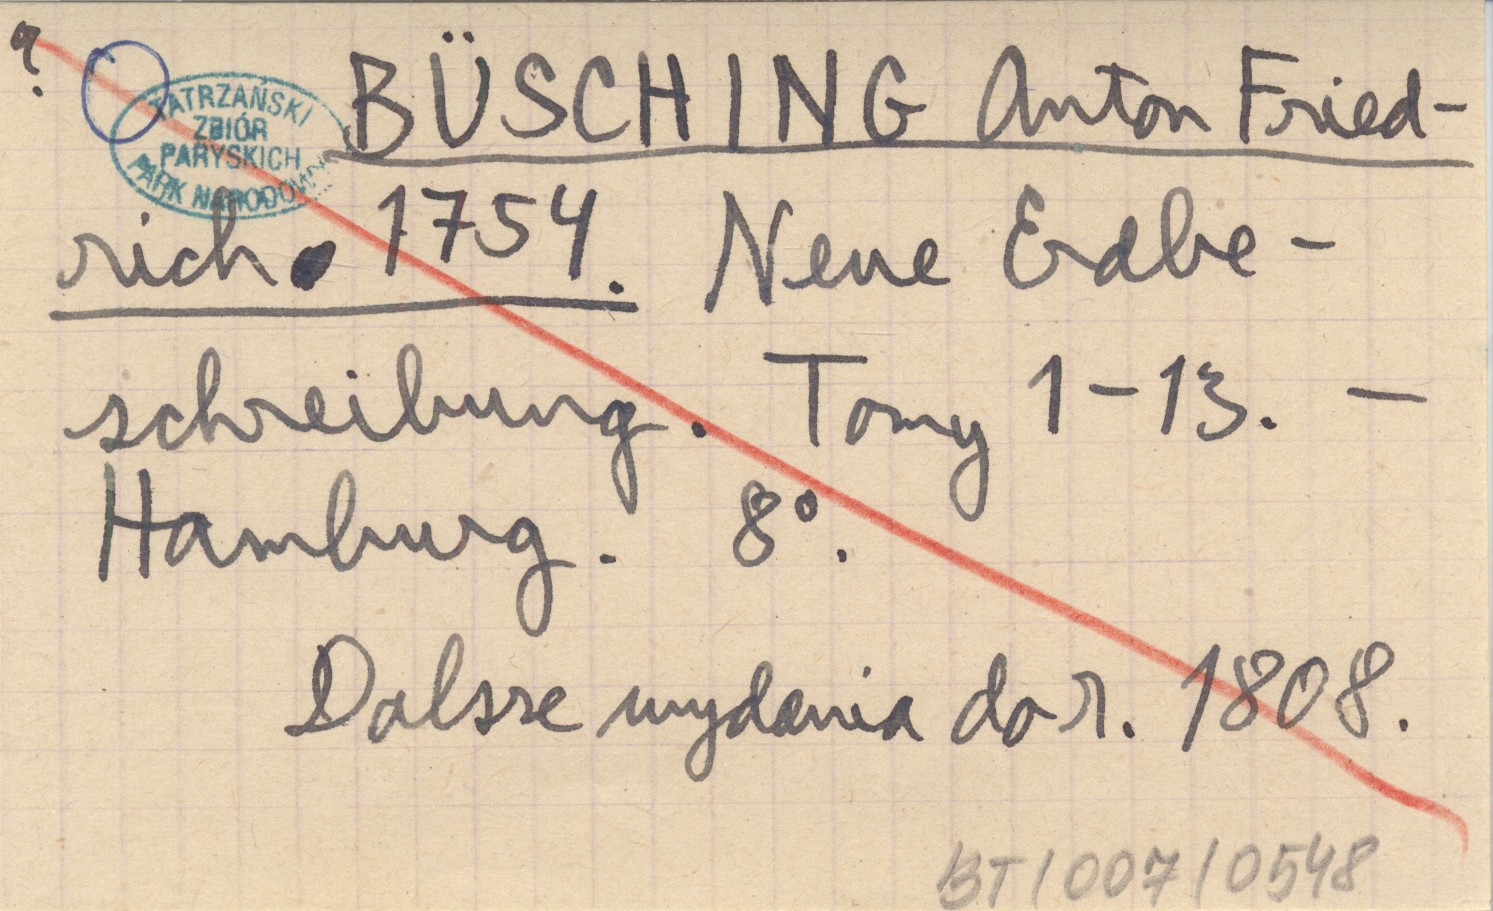 ?
TATRZAŃSKI
ZBIÓR
PARYSKICH
PARK NARODOWY
BÜSCHING Anton Fried-
rich. 1754. Neue Erdbe-
schreibung. Tomy 1-13. -
Hamburg. 8°.
Dalsze wydania do r. 1808.
BT/007/0548